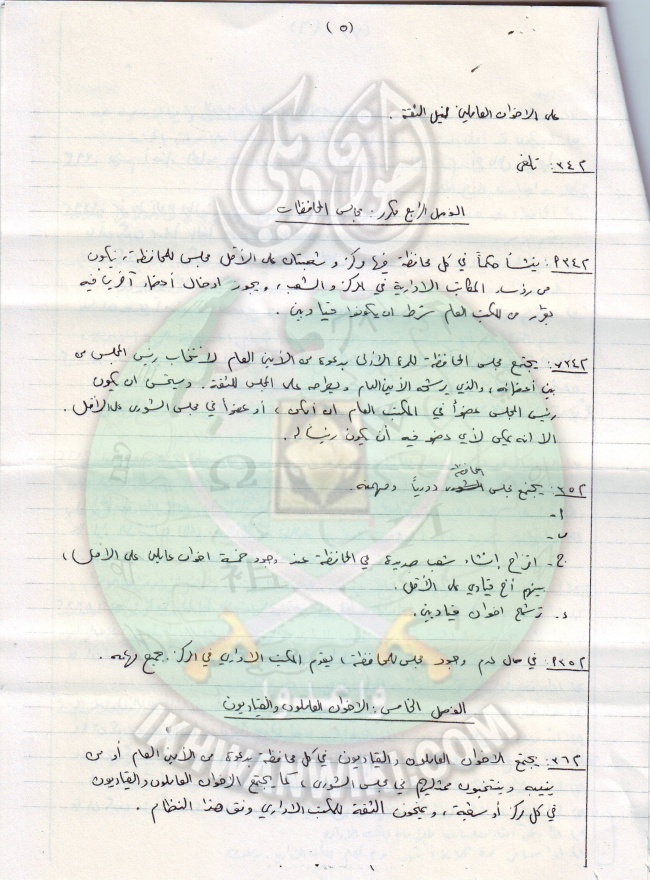 (٥)
على الاخوان العاملين لنيل الثقة .
م٣٤٢: تلغى
الفصل الرابع مكرر: مجالس المحافظات
ينشأ حكماً في كل محافظة فيها مركز و شعبتان على الأقل مجلس للمحافظة، يتكون
من رؤساء المكاتب الادارية في المركز والشعب، ويجوز ادخال أعضاء آخرين فيه
بقرار من المكتب العام شرط ان يكونوا قياديين.
يجتمع مجلس المحافظة للمرة الأولى بدعوة من الأمين العام لانتخاب رئيس المجلس من
بين أعضائه، والذي يرشحه الأمين العام ويطرحه على المجلس للثقة. ويستحسن ان يكون
رئيس المجلس عضواً في المكتب العام ان أمكن، أو عضواً في مجلس الشورى على الأقل.
الا انه يمكن لأي عضو فيه أن يكون رئيساً له.
المحافظة
م٣٥٢: يجتمع مجلس الشورى دورياً ومهمته.
أ-
ب-
ج- اقتراح إنشاء شعب جديدة في المحافظة عند وجود خمسة اخوان عاملين على الأقل،
بينهم أخ قيادي على الأقل.
د. ترشيح اخوان قياديين.
في حال عدم وجود مجلس للمحافظة، يقوم المكتب الاداري في المركز بجميع مهامه.
الفصل الخامس: الاخوان العاملون والقياديون
م٣٦٢: يجتمع الاخوان العاملون والقياديون في كل محافظة بدعوة من الأمين العام أو من
ينيبه وينتخبون ممثليهم في مجلس الشورى، كما يجتمع الاخوان العاملون والقياديون
في كل مركز أو شعبة، ويمنحون الثقة للمكتب الاداري وفق هذا النظام.
وأعدوا
IKHWANWIKI.COM